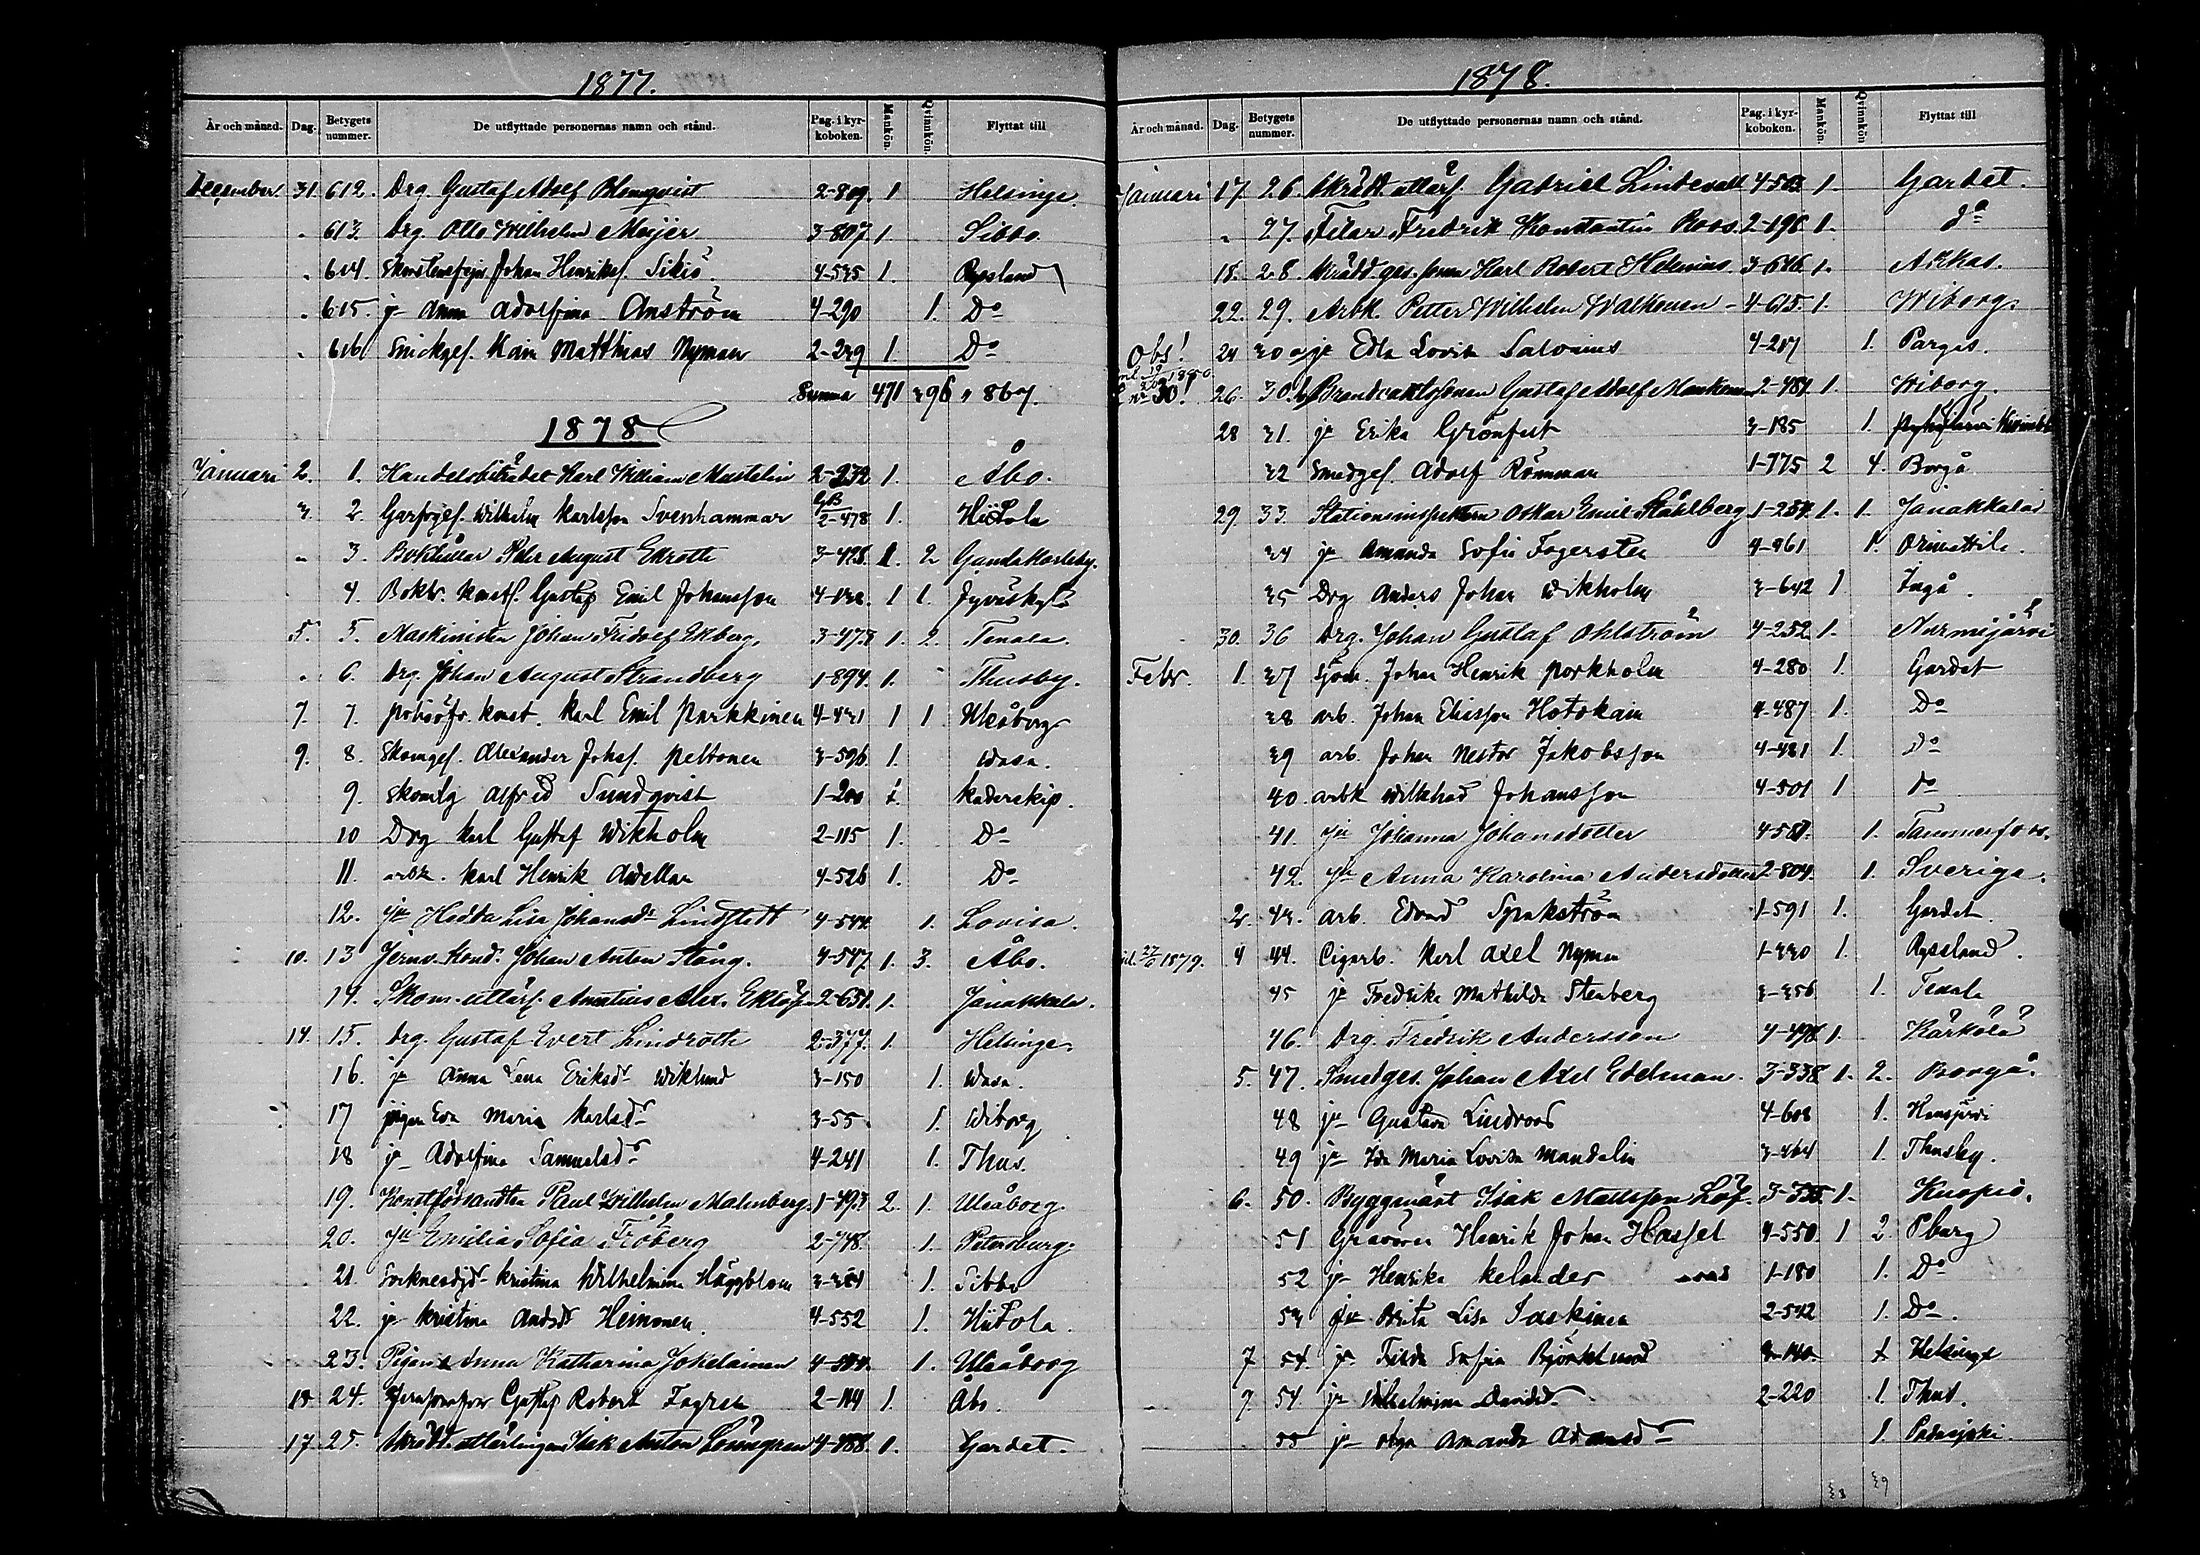 1877.
År och månad. Dag. Betygets nummer. De utflyttade personernas namn och stånd. Pag. i kyrkoboken. Mankön. Qvinnkön. Flyttat till
December 31 612. Drg. Gustaf Adolf Blomqvist 2-809. 1. Helsinge.
" 613. Drg. Otto Wilhelm Meijer 3-807 1. Sibbo.
" 614. Johan Henriks. 4-535 1. Ryssland
" 615. jr Anna Adolfina Anström 4-290 1. Do
" 616 Snickges. Karl Matthias Nyman 2-239 1. Do
Summa 471 396 " 867.
1878
Januari 2. 1. Handelsbiträdet Karl William Mustelin 2-232 1. Åbo.
3. 2. Garfvgs. Wilhelm Karlsson Svenhammar 2-478 1. Hiitola
" 3. Bokhållar Pehr August Ekroth 3-428. 1. 2 Gamlakarleby.
4. Boktr. konstf. Gustaf Emil Johansson 1 1. Jyväskylä
5. 5. Maskinisten Johan Fridolf Ekberg. 3-473 1. 2. Tenala
" 6. Drg. Johan August Strandberg 1-894. 1. Thusby.
7. 7. Karl Emil Parkkinen 4-431 1 1 Uleåborg
9. 8. Skomgs. Alexander Johas. Peltonen 3-596 1. Wasa.
9. Skomlg Alfred Sundqvist 1-200 1. kaderskip.
10 Drg Karl Gustaf Wikholm 2-115 1. Do
11. arbk. Karl Henrik Avellan 4-526 1. Do
12. jr Hedda Lisa Johansdr Lindstedt 4-544. 1. Lovisa.
10. 13 Jernv. Kond. Johan Anton Stång. 4-547. 1. 3. Åbo.
14. Skom. utlärl. Amatius Alex. Eklöf 2-651. 1. Janakkala.
14. 15. Drg. Gustaf Evert Lindroth 2-377. 1. Helsinge.
16. jr Anna Lena Eriksdr Wiklund 3-150 1. Wasa.
17 pigan Eva Maria Karlsdr 3-55 1. Wiborg
18 jr Adolfina Samuelsdr 4-241 1. Thus.
19. Konstförvandten Paul Wilhelm Malmberg. 1-493 2. 1. Uleåborg
20. jr Emilia Sofia Fröberg 2-748. 1. Petersburg.
21. Sockneskrdr Kristina Wilhelmina Häggblom 1. Sibbo
22. jr Kristina Andsdr Heinonen 4-552 1. Hiitola.
23. Pigan Anna Katharina Jokelainen 1. Uleåborg
18 24. Gustaf Robert Fagren 2-114 1. Åbo.
17. 25. Skrädd. utlärlingen Isak Anton Löfgren 4-388. 1. Gardet.
1878.
År och månad. Dag. Betygets nummer. De utflyttade personernas namn och stånd. Pag. i kyrkoboken. Mankön. Qvinnkön Flyttat till
Januari 17. 26. Skrädd. utlärl. Gabriel Lindevall 4-503 1. Gardet.
" 27. Filar Fredrik Konstantin Roos. 2-196 1. do
18. 28. Skrädd. ges. sonen Karl Robert Helenius. 3-616 1. Akkas.
22. 29. Arbk. Petter Wilhelm Walkonen 4-615. 1. Wiborg.
Obs! 24 30 a/ jr Edla Lovisa Salonius 4-217 1. Pargas.
no 30! 26. 30. b/ Brandvaktsonen Gustaf Adolf Mankonen 2-481 1. Wiborg.
28 31. jr Erika Grönfelt 3-185 1.
32 Smedges. Adolf Rönnman 1-775 2 4. Borgå
29. 33. Stationsinspektoren Oskar Emil Ståhlberg 1-254. 1. 1. Janakkala
34 jr Amanda Sofia Fagersten 4-461 1. Orimattila.
35 Drg Anders Johan Wikholm 3-642 1 Ingå.
30. 36 Drg. Johan Gustaf Ohlström 4-252 1. Nurmijärvi
Febr. 1. 37 Sjöm. Johan Henrik Porkholm 4-280 1. Gardet
38 arb. Johan Eliasson Hotokain 4-487 1. Do
39 arb. Johan Nestor Jakobsson 4-481 1. Do
40. arbk Wilhad Johansson 4-501 1 do
41. jr Johanna Johansdotter 4-581. 1. Tammerfors.
42. jr Anna Karolina Andersdotter 2-804. 1. Sverige.
2. 43. arb. Edvard Spakström 1-591 1. Gardet
1879. 4 44. Cigarb. Karl Axel Nyman 1-330 1. Ryssland.
45 jr Fredrika Mathilda Stenberg 3-356 1. Tenala
46. Drg. Fredrik Andersson 4-498 1. Kärkölä
5. 47. Smedges. Johan Axel Edelman. 3-338 1. 2. Borgå.
48 jr Gustava Lindroos 4-608 1. Hausjärvi
49 jr Ida Maria Lovisa Mandelin 3-464 1. Thusby.
6. 50. Byggmäst Isak Mattsson Löf. 1. Kuopio.
51 Gravören Henrik Johan Hassel 4-550 1 2. Pburg
52 jr Henrika Kelander 1-180 1. Do
53 jr Brita Lisa Saskinen 2-542 1. Do.
7 54 jr Tilda Sofia Björklund 1 Helsinge
7. 54. jr Wilhelmina Davidsdr 2-220 1. Thus.
55 jr Olga Amanda Adamsdr 1. Padasjoki.
38 39